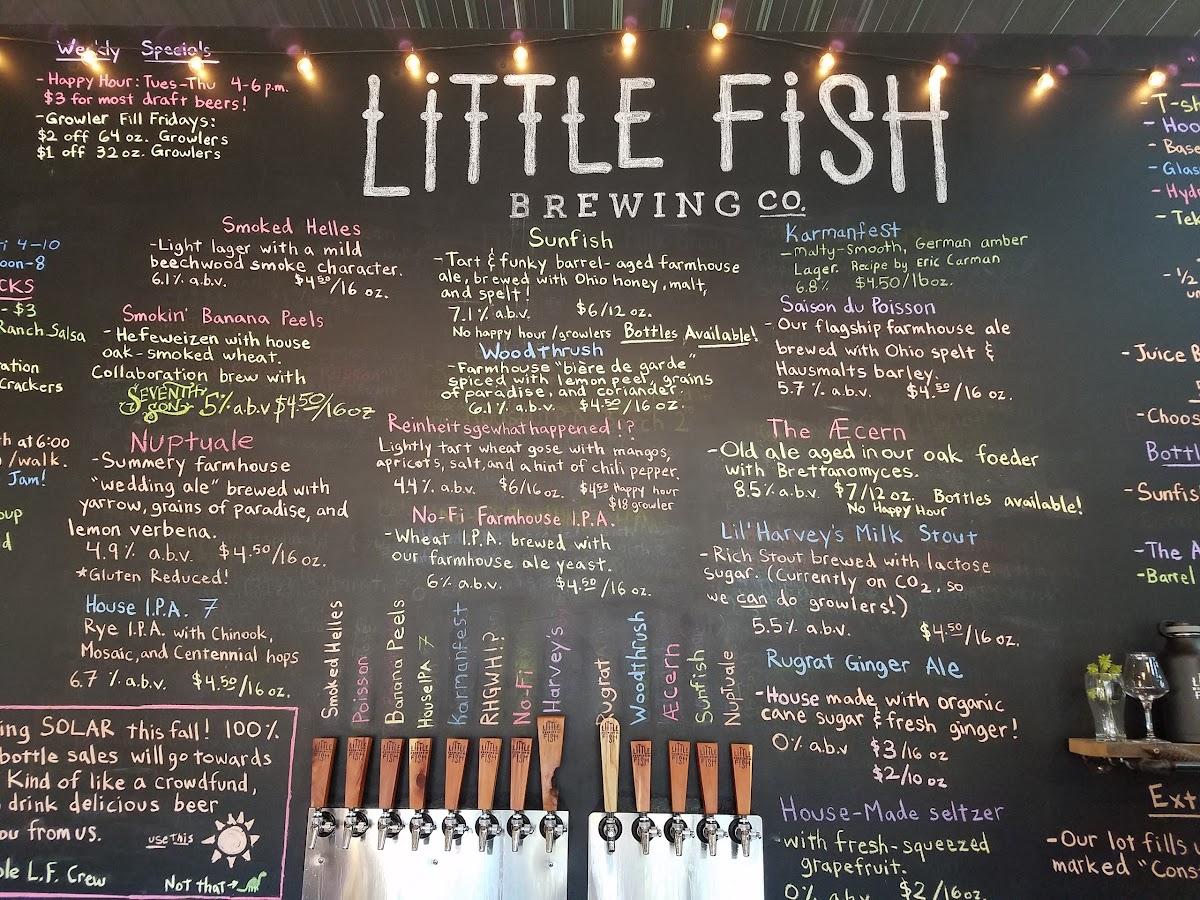 Weekly Specials
- Happy Hour: Tues-Thu 4-6 p.m.
$3 for most draft beers!
- Growler Fill Fridays:
$2 off 64 oz. Growlers
$1 off 32 oz. Growlers
LiTTLE FiSH
BREWING CO.
Smoked Helles
- Light lager with a mild
beechwood smoke character.
6.1% a.b.v. $4.50/16 oz.
Smokin' Banana Peels
- Hefeweizen with house
oak-smoked wheat.
Collaboration brew with
SEVENTH SON 5% a.b.v $4.50/16oz
Nuptuale
- Summery farmhouse
"wedding ale" brewed with
yarrow, grains of paradise, and
lemon verbena.
4.9% a.b.v. $4.50/16 oz.
*Gluten Reduced!
House I.P.A. 7
Rye I.P.A. with Chinook,
Mosaic, and Centennial hops
6.7 % a.b.v. $4.50/16 oz.
Sunfish
- Tart & funky barrel-aged farmhouse
ale, brewed with Ohio honey, malt,
and spelt!
7.1% a.b.v. $6/12 oz.
No happy hour/growlers Bottles Available!
Woodthrush
- Farmhouse "bière de garde"
spiced with lemon peel, grains
of paradise, and coriander.
6.1% a.b.v. $4.50/16 oz.
Reinheitsgewhathappened!?
Lightly tart wheat gose with mangos,
apricots, salt, and a hint of chili pepper.
4.4% a.b.v. $6/16oz. $4.50 Happy hour
$18 growler
No-Fi Farmhouse I.P.A.
- Wheat I.P.A. brewed with
our farmhouse ale yeast.
6% a.b.v. $4.50/16 oz.
Karmanfest
- Malty-smooth, German amber
Lager. Recipe by Eric Carman
6.8% $4.50/16oz.
Saison du Poisson
- Our flagship farmhouse ale
brewed with Ohio spelt &
Hausmalts barley.
5.7% a.b.v. $4.50/16 oz.
The Æcern
- Old ale aged in our oak foeder
with Brettanomyces.
8.5% a.b.v. $7/12 oz. Bottles available!
No Happy Hour
Lil' Harvey's Milk Stout
- Rich Stout brewed with lactose
sugar. (Currently on CO2, so
we can do growlers!)
5.5% a.b.v. $4.50/16 oz.
Rugrat Ginger Ale
- House made with organic
cane sugar & fresh ginger!
0% a.b.v $3/16 oz
$2/10 oz
House-Made seltzer
- with fresh-squeezed
grapefruit.
0% a.b.v. $2/16oz.
Smoked Helles
Poisson
Banana Peels
House IPA 7
Karmanfest
RHGWH!?
No-Fi
Harvey's
Rugrat
Woodthrush
Æcern
Sunfish
Nuptuale
4-10
oon-8
CKS
- $3
Ranch Salsa
ration
crackers
h at 6:00
/walk.
Jam!
oup
d
ing SOLAR this fall! 100%
bottle sales will go towards
Kind of like a crowdfund,
drink delicious beer
ou from us.
use this
Not that→
ble L.F. Crew
- T-sh
- Hoo
- Base
- Glas
- Hydr
- Tek
- 1/2
- Juice B
- Choos
Bottl
- Sunfis
- The A
- Barrel
Ext
- Our lot fills u
marked "Cons